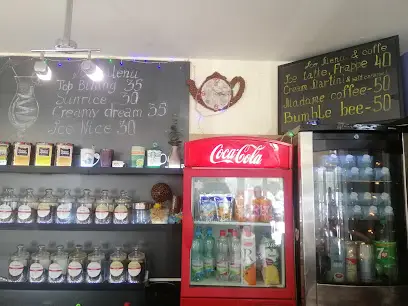 Menu
Top Bining 35
Sunrice 30
Creamy dream 35
Ice Nice 30
Ice Menu & coffe
Ice latte, Frappe 40
Cream Martini
Madame coffee-50
Bumble bee-50
Coca-Cola
7up